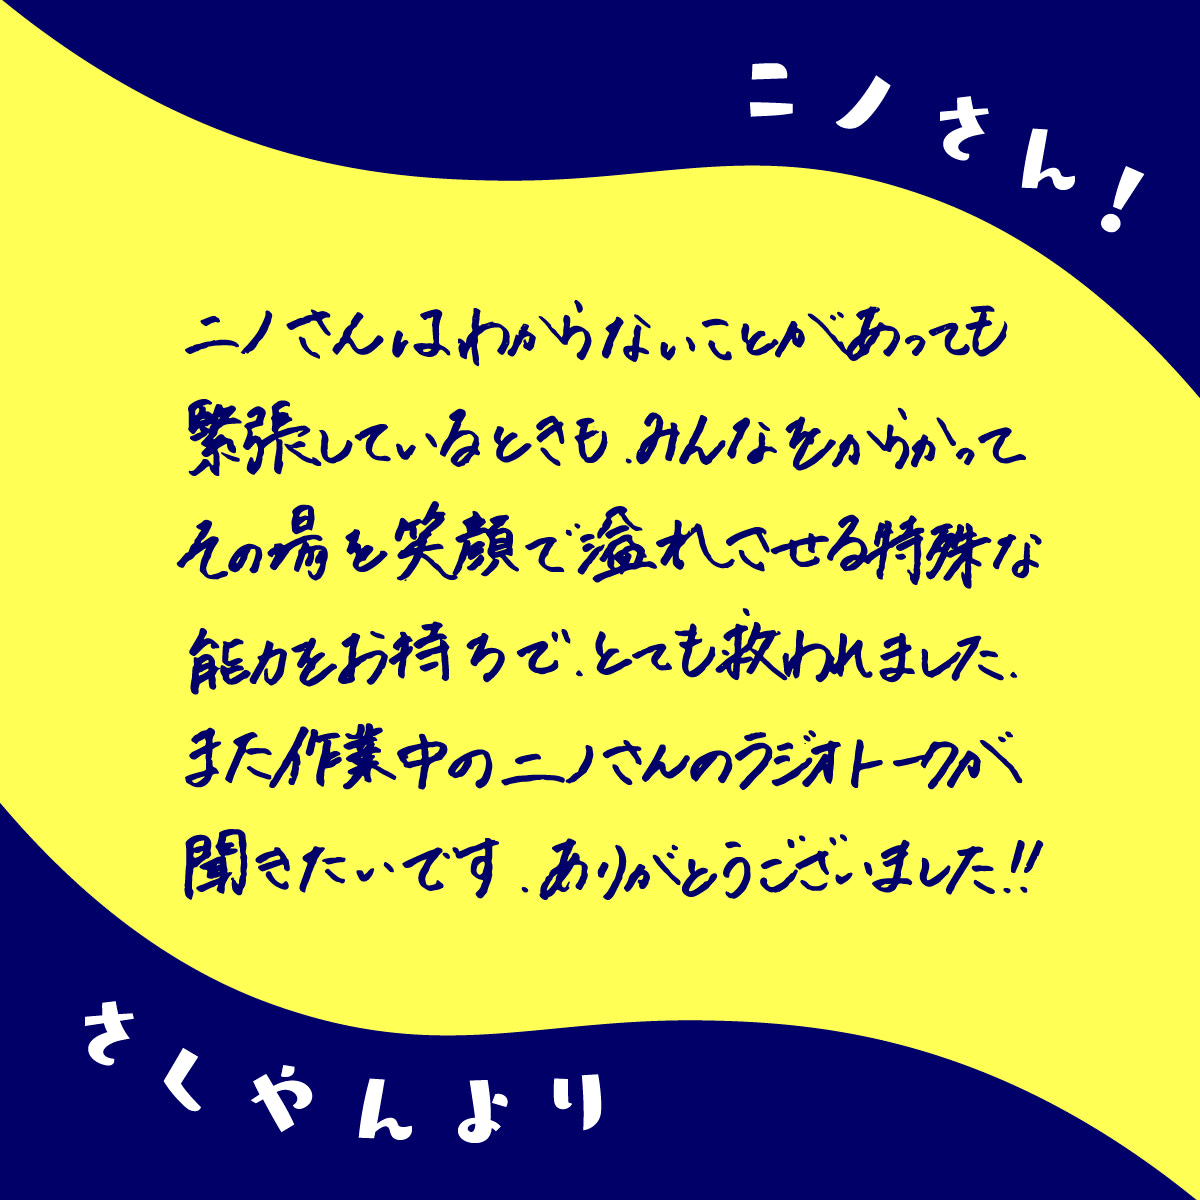 ニノさん!
ニノさんはわからないことがあっても
緊張しているときも、みんなをからかって
その場を笑顔で溢れさせる特殊な
能力をお持ちで、とても救われました、
また作業中のニノさんのラジオトークが
聞きたいです、ありがとうございました!!
さくやんより